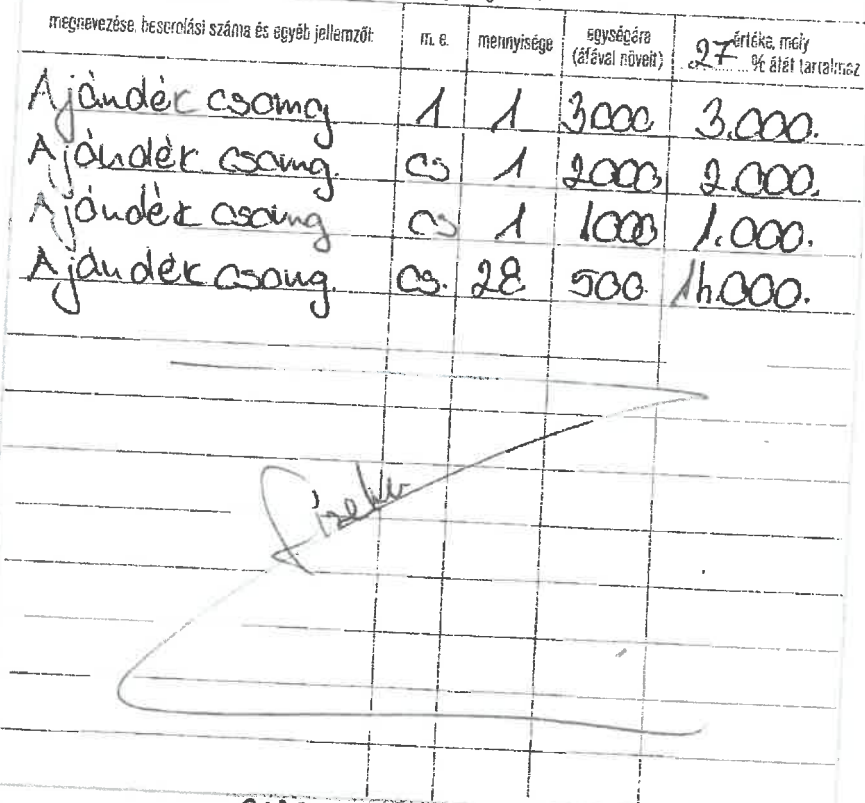 megnevezése, besorolási száma és egyéb jellemzői: m. e. mennyisége egységára (áfával növelt) 27 % áfát tartalmaz értéke, mely
Ajándék csomag 1 1 3000 3.000.
Ajándék csomag. cs 1 2000 2.000.
Ajándék csomag cs 1 1000 1.000.
Ajándék csomag. cs. 28 500 14.000.